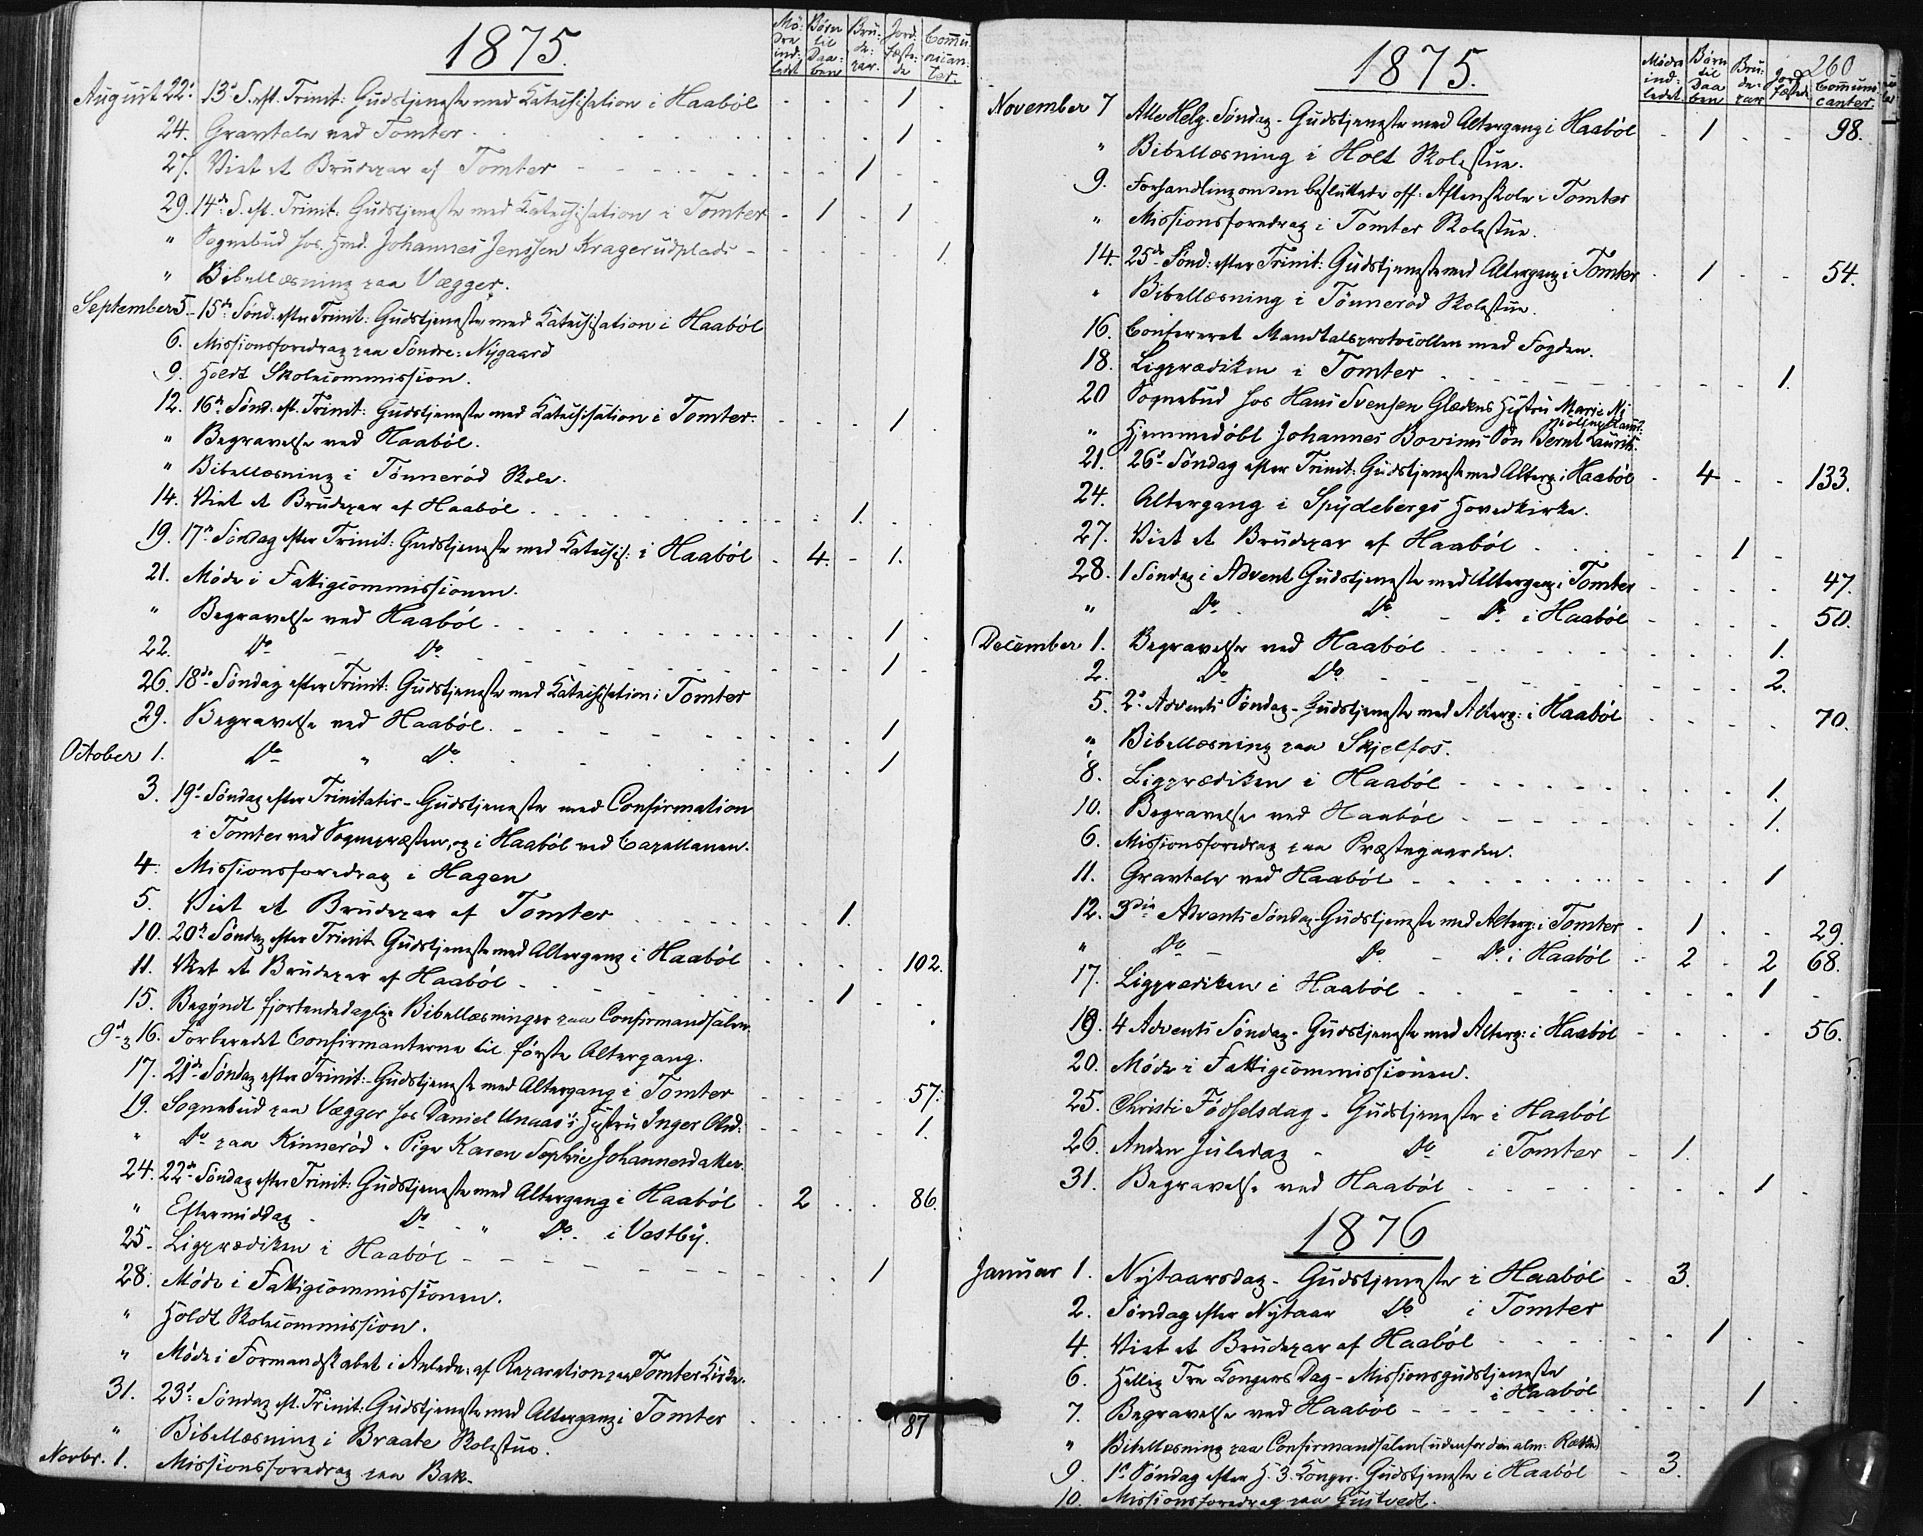 1875.
Mö-
dre
ind-
ledet
Börn
til
Daa-
ben
Bru-
de-
par.
Jord-
fæste-
de
Com̄u-
nican-
ter.
August 22. 13' S. eft. Trinit: Gudstjeneste med Katechisation i Haaböl - - - 1 -
24. Gravtale ved Tomter - - - 1 -
27. Viet et Brudepar af Tomter - - 1 - -
29. 14de S. eft. Trinit: Gudstjeneste med Katechisation i Tomter - 1 - 1 -
" Sognebud hos Johannes Jenssen Kragerudplads - - - - 1.
" Bibellæsning paa Vægger.
September 5. 15de Sönd. efter Trinit: Gudstjeneste med Katechisation i Haaböl
6. Missionsforedrag paa Söndre: Nygaard
9. Holdt Skolecommission.
12. 16de Sönd. eft. Trinit: Gudstjeneste med Katechisation i Tomter. - - - 1 -
" Begravelse ved Haaböl.
" Bibellæsning i Tönneröd Skole.
14. Viet et Brudepar af Haaböl - - 1. - -
19. 17de Söndag efter Trinit: Gudstjeneste med Katechis: i Haaböl - 4. - 1.
21. Möde i Fattigcommissionen.
" Begravelse ved Haaböl - - - 1 -
22. Do - Do - - - 1 -
26. 18de Söndag efter Trinit: Gudstjeneste med Katechisation i Tomter
29. Begravelse ved Haaböl - - - 1
October 1. Do " Do - - - 1
3. 19' Söndag efter Trinitatis - Gudstjeneste med Confirmation
i Tomter ved Sognepræsten, og i Haaböl ved Capellanen.
4. Missionsforedrag i Hagen
5. Viet et Brudepar af Tomter - - 1.
10. 20de Söndag efter Trinit. Gudstjeneste med Altergang i Haaböl - - - - 102.
11. Viet et Brudepar af Haaböl - - 1 - -
15. Begyndt fjortendedaglige Bibellæsninger paa Confirmandsalen.
16. Forberedet Confirmanterne til förste Altergang.
17. 21de Söndag efter Trinit: Gudstjeneste med Altergang i Tomter - - - - 57.
19. Sognebud paa Vægger hos Daniel Unaas's Hustru Inger - - - - 1.
" Do paa Kinneröd - Pige Karen Sophie Johannesdatter.
24. 22de Söndag efter Trinit: Gudstjeneste med Altergang i Haaböl - 2 - - 86.
" Eftermiddag - Do - " Do. i Vestby.
25. Ligprædiken i Haaböl - - - 1
28. Möde i Fattigcommissionen.
" Holdt Skolecommission.
" Möde i Formandskabet i Anledn. af Reparation paa Tomter Kirke.
31. 23' Söndag eft. Trinit: Gudstjeneste med Altergang i Tomter - - - - 87
" Bibellæsning i Braate Skolestue.
Novbr. 1. Missionsforedrag paa Bak.
260
1875.
Mödre
ind-
ledet
Börn
til
Daa
ben
Bru-
de-
par
Jord
fæstede
Com̄uni-
canter.
November 7 Alle Helg. Söndag - Gudstjeneste med Altergang i Haaböl - 1 - - 98.
" Bibellæsning i Holt Skolestue.
9. Forhandling om den besluttede off: Aftenskole i Tomter
" Missionsforedrag i Tomter Skolestue.
14. 25de Sönd: efter Trinit: Gudstjeneste med Altergang i Tomter - 1 - - 54.
" Bibellæsning i Tönneröd Skolestue.
16. Confereret Mandtalsprotocollen med Fogden.
18. Ligprædiken i Tomter - - - 1.
20 Sognebud hos Hans Svensen Glædens Hustru Marie
" Hjemmedöbt Johannes Bovims Sön Bernt Laurits.
21. 26' Söndag efter Trinit: Gudstjeneste med Alterg: i Haaböl - 4 - - 133.
24. Altergang i Spydebergs Hovedkirke.
27. Viet et Brudepar af Haaböl - - 1 -
28. 1 Söndag i Advent Gudstjeneste med Altergang i Tomter - - - - 47.
" Do - Do - Do i Haaböl - - - - 50.
December 1. Begravelse ved Haaböl - - - 1.
2. Do Do - - - 2.
5. 2' Advents Söndag - Gudstjeneste med Alterg: i Haaböl - - - - 70.
" Bibellæsning paa Skjelfos.
8. Ligprædiken i Haaböl - - - 1.
10. Begravelse ved Haaböl - - - 1.
6. Missionsforedrag paa Præstegaarden.
11. Gravtale ved Haaböl - - - 1
12. 3die Advents Söndag Gudstjeneste med Alterg: i Tomter - 1 - - 29.
" Do - Do - Do: i Haaböl - 2 - 2 68.
17. Ligprædiken i Haaböl - - - 1 -
19. 4 Advents Söndag - Gudstjeneste med Alterg: i Haaböl - - - - 56.
20. Möde i Fattigcommissionen.
25. Christi Födselsdag - Gudstjeneste i Haaböl
26. Anden Juledag - Do i Tomter - 1.
31. Begravelse ved Haaböl - - - 1 -
1876
Januar 1. Nytaarsdag - Gudstjeneste i Haaböl - 3.
2. Söndag efter Nytaar Do i Tomter
4. Viet et Brudepar af Haaböl - - 1 - -
6. Hellig Tre Kongers Dag - Missionsgudstjeneste
i Haaböl
7. Begravelse ved Haaböl - - - 1 -
" Bibellæsning paa Confirmandsalen (udenfor den alm: Række)
9. 1' Söndag efter H. 3. Konger. Gudstjeneste i Haaböl - 3.
10. Missionsforedrag paa Gustvedt.